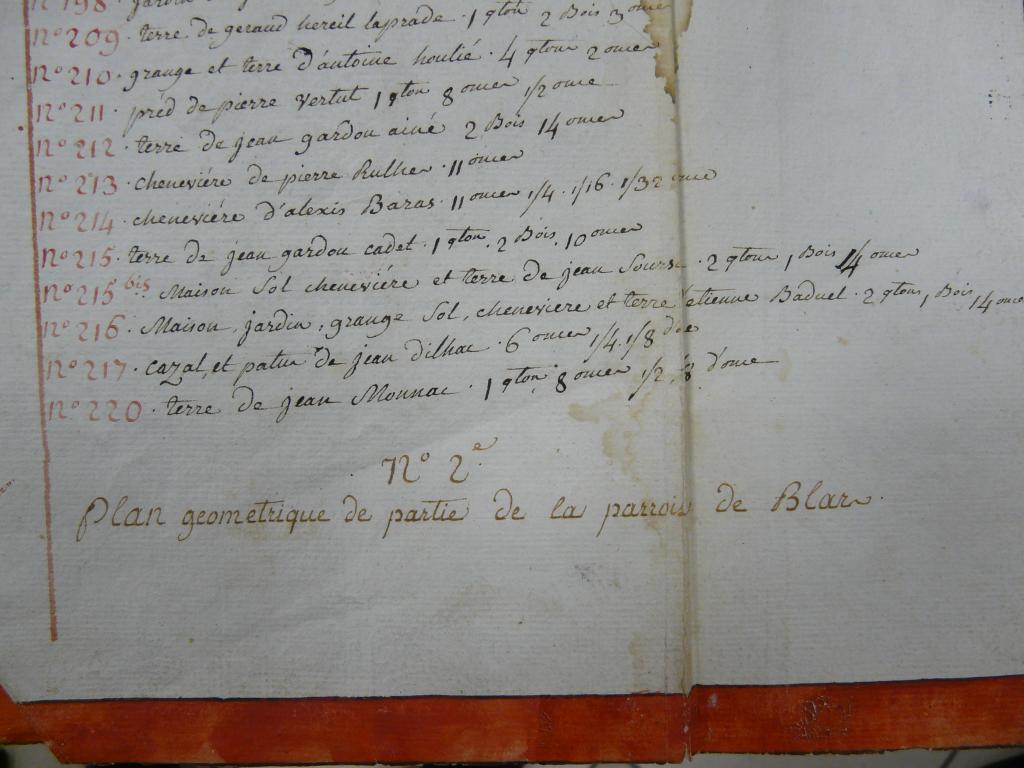 n° 198 · jardin
n° 209 · terre de geraud hereil laprade · 1 qton 2 Bois 3 omer
n° 210 · grange et terre d'antoine houlié · 4 qtons 2 omer
n° 211 · pred de pierre Vertut 1 qton 8 omer 1/2 ome
n° 212 · terre de jean gardou ainé 2 Bois 14 omer
n° 213 · cheneviére de pierre Rulher · 11 omer
n° 214 · cheneviére d'alexis Baras · 11 omer 1/4 · 1/16 · 1/32 ome
n° 215 · terre de jean gardou cadet · 1 qton · 2 Bois · 10 omer
n° 215 bis · Maison Sol cheneviére et terre de jean · 2 qtons 1 Bois 14 omer
n° 216 · Maison, jardin, grange Sol, cheneviere et terre etienne Baduel · 2 qtons 1 Bois 14 ome
n° 217 · cazal, et patu de jean dilhac · 6 omer 1/4 · 1/8 d'ome
n° 220 · terre de jean Monnac · 1 qton 8 omer 1/2 1/8 d'ome
N° 2e
Plan geometrique de partie de la parrois de Blars ·